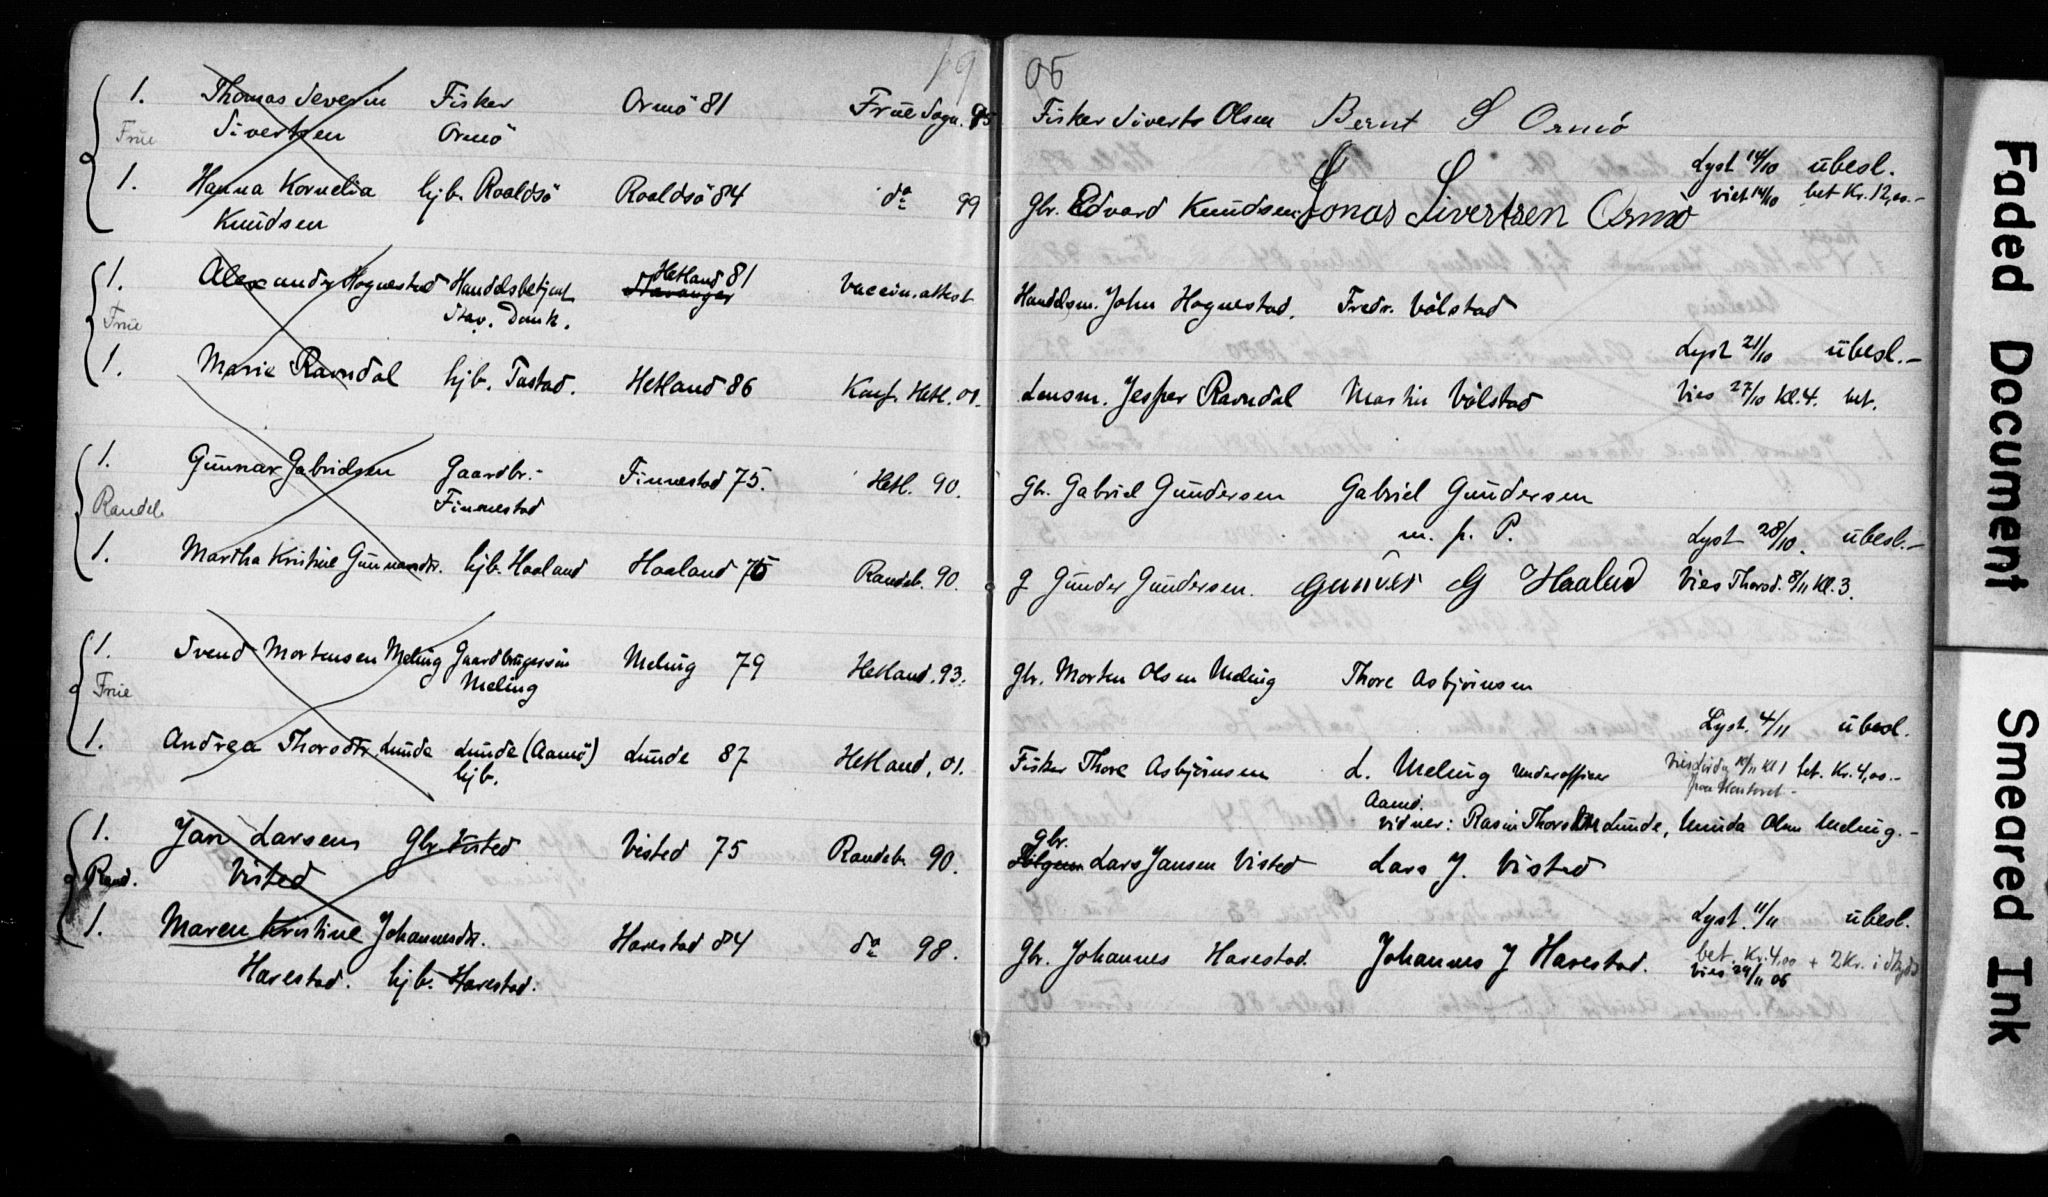 19 06
1. Thomas Severin Fisker Ormö 81 Frue Sogn. 95 Fisker Siverts Olsen Bernt S Ormö
Frue Sivertsen Ormö
Lyst 14/10 übesl.
1. Hanna Kornelia hjb. Roaldsö Roaldsö 84 do 99 Gbr. Edvard Knudsen Jonas Sivertsen Ormö viet 14/10 bet Kr. 12,00.-
Knudsen
1. Alexander Hognestad Handelsbetjent Hetland 81 Vaccin. attest Handelsm. John Hognestad. Fredr. Völstad
Stavanger
Frue Stav. Domk.
Lyst 21/10 übesl.-
1. Marie Ravndal hjb. Tastad. Hetland 86 Konf. Hetl. 01. Lensm. Jesper Ravndal Martin Völstad Vies 27/10 Kl. 4. bet.
1. Gunnar Gabrielsen Gaardbr.- Finnestad 75. Hetl. 90. Gbr. Gabriel Gundersen Gabriel Gundersen
Randeb. Finnestad
m. p. P. Lyst 28/10. übesl.-
1. Martha Kristine Gunnarsdtr. hjb. Haaland Haaland 76 Randeb. 90. G Gunder Gundersen. Gunver G Haaland Vies Thorsd. 8/11 Kl. 3.
1. Svend Mortensen Meling Gaardbrugersön Meling 79 Hetland. 93. Gbr. Morten Olsen Meling Thore Asbjörnsen
Frue Meling
Lyst. 4/11 übesl.
1. Andrea Thorsdtr. Lunde Lunde (Aamö) Lunde 87 Hetland, 01. Fisker Thore Asbjörnsen L. Meling Underofficer Vies Lördag 10/11 Kl 1 bet. Kr. 4,00.-
hjb. paa Kontoret-
Aamö.
Vidner: Rasm Thorsen Lunde, Olsen Meling.-
1. Jan Larsen Gbr. Visted Visted 75 Randeb. 90. Gbr. Lars Jansen Visted Lars J. Visted
Rand. Visted
Lyst. 11/11 übesl.
1. Maren Kristine Johannesdtr. Harestad 84 do 98. Gbr. Johannes Harestad. Johannes J Harestad. bet. Kr. 4,00 + 2 Kr. i
Harestad. hjb. Harestad. Vies 24/11 06
Faded Document
Smeared Ink